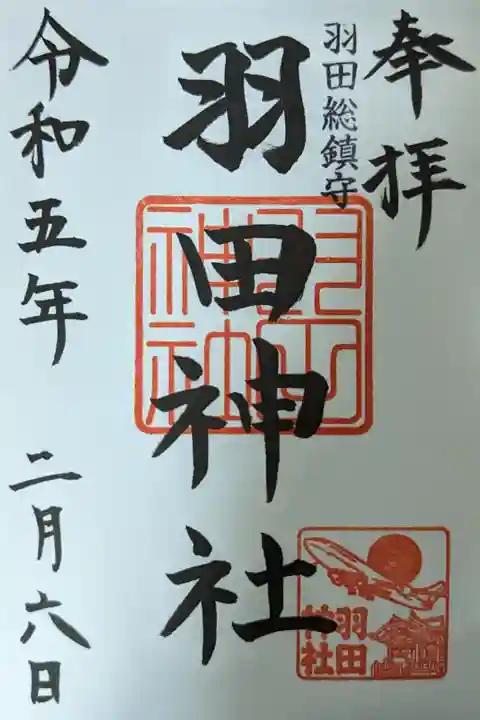 奉拝
羽田総鎮守
羽田神社
羽田神社
令和五年 二月六日
羽田
神社